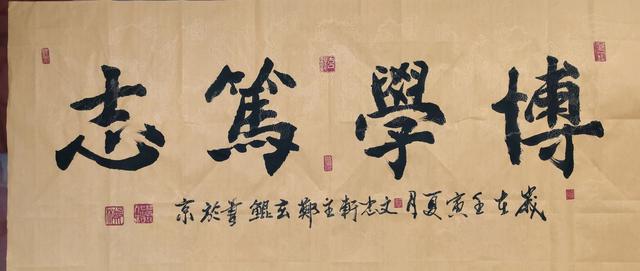 博學篤志
歲在壬寅夏月文忠軒主鄭玄錕書於京